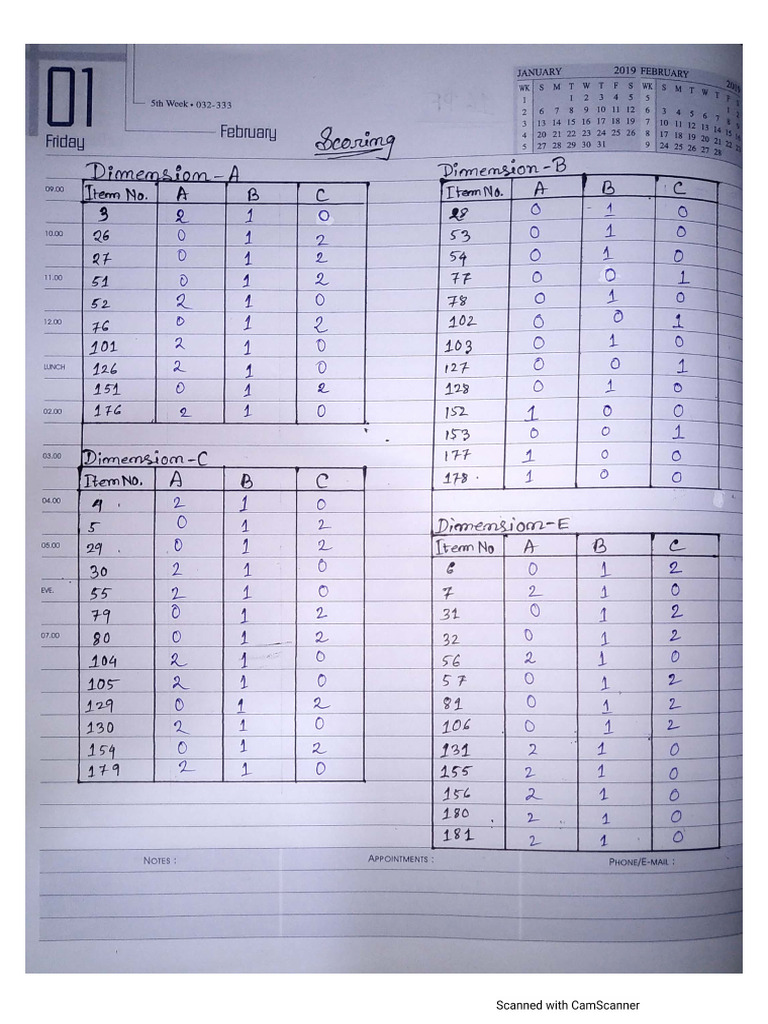 01
Friday
5th Week • 032-333
February
Scoring
JANUARY 2019 FEBRUARY 2019
WK S M T W T F S WK S M T W T F S
1 1 2 3 4 5 5 1 2
2 6 7 8 9 10 11 12 6 3 4 5 6 7 8 9
3 13 14 15 16 17 18 19 7 10 11 12 13 14 15 16
4 20 21 22 23 24 25 26 8 17 18 19 20 21 22 23
5 27 28 29 30 31 9 24 25 26 27 28
Dimension-A
Item No. A B C
3 2 1 0
26 0 1 2
27 0 1 2
51 0 1 2
52 2 1 0
76 0 1 2
101 2 1 0
126 2 1 0
151 0 1 2
176 2 1 0
Dimension-B
Item No. A B C
28 0 1 0
53 0 1 0
54 0 1 0
77 0 0 1
78 0 1 0
102 0 0 1
103 0 1 0
127 0 0 1
128 0 1 0
152 1 0 0
153 0 0 1
177 1 0 0
178 1 0 0
Dimension-C
Item No. A B C
4 2 1 0
5 0 1 2
29 0 1 2
30 2 1 0
55 2 1 0
79 0 1 2
80 0 1 2
104 2 1 0
105 2 1 0
129 0 1 2
130 2 1 0
154 0 1 2
179 2 1 0
Dimension-E
Item No A B C
6 0 1 2
7 2 1 0
31 0 1 2
32 0 1 2
56 2 1 0
57 0 1 2
81 0 1 2
106 0 1 2
131 2 1 0
155 2 1 0
156 2 1 0
180 2 1 0
181 2 1 0
09.00
10.00
11.00
12.00
LUNCH
02.00
03.00
04.00
05.00
EVE.
07.00
NOTES : APPOINTMENTS : PHONE/E-MAIL :
Scanned with CamScanner